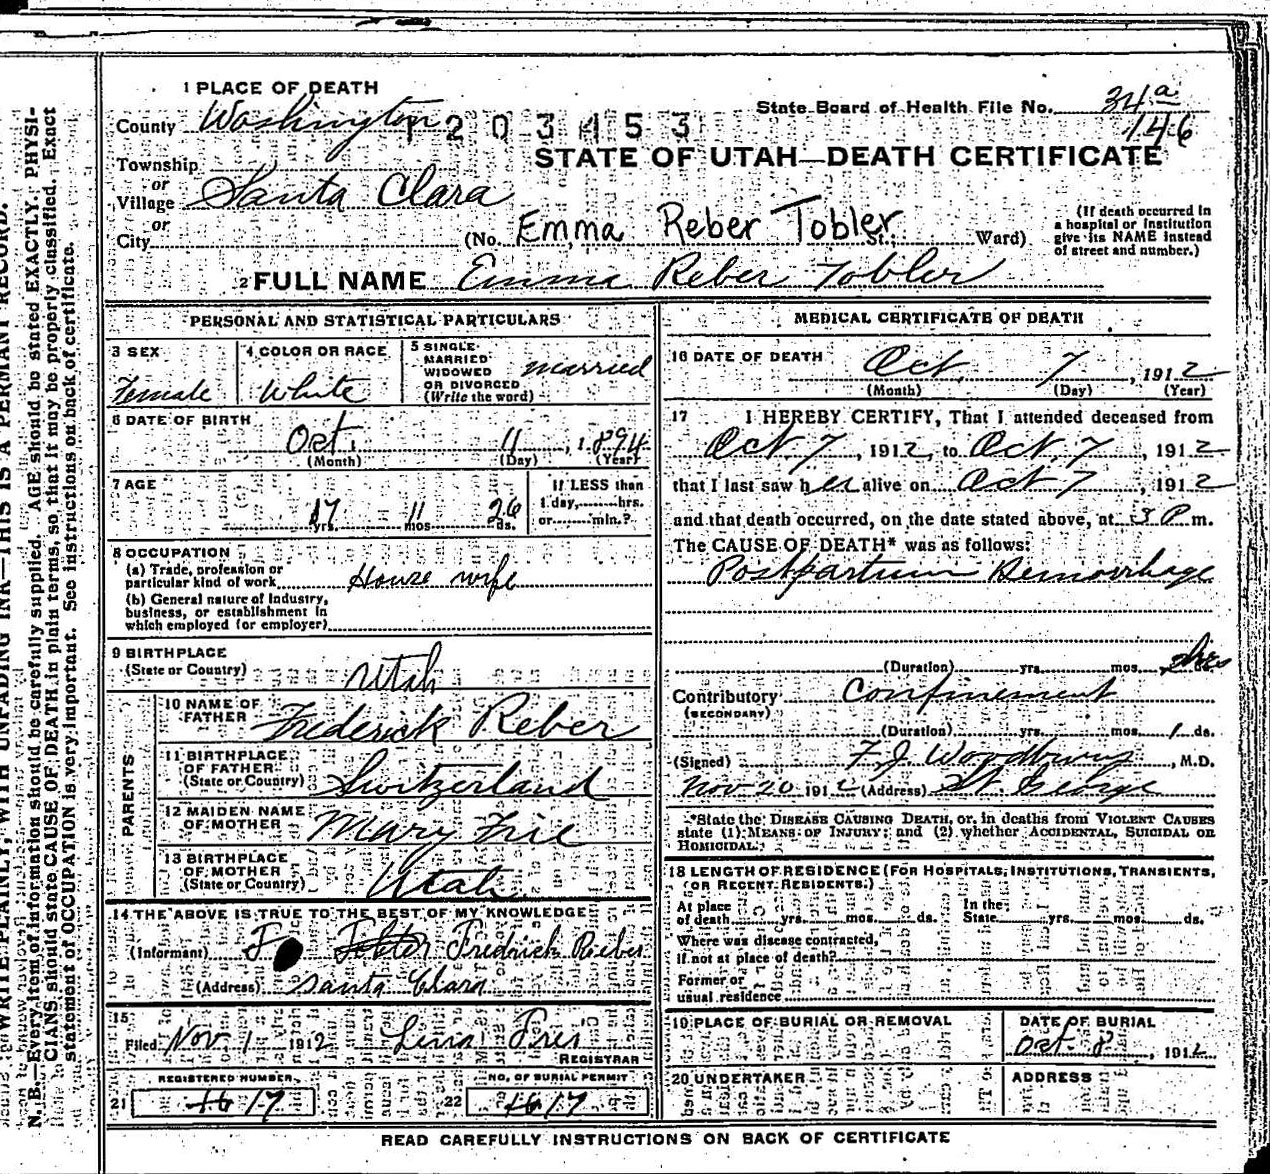 1 PLACE OF DEATH
County Washington 1203153
State Board of Health File No. 34a
146
STATE OF UTAH—DEATH CERTIFICATE
Township
or
Village Santa Clara
or
City (No. Emma Reber Tobler St.; Ward)
(If death occurred in
a hospital or institution
give its NAME instead
of street and number.)
2 FULL NAME Emma Reber Tobler
PERSONAL AND STATISTICAL PARTICULARS
3 SEX
Female
4 COLOR OR RACE
White
5 SINGLE
MARRIED
WIDOWED
OR DIVORCED
(Write the word)
married
6 DATE OF BIRTH
Oct. 11, 1894
(Month) (Day) (Year)
7 AGE
17 yrs. 11 mos 26 ds.
If LESS than
1 day,........hrs.
or........min.?
8 OCCUPATION
(a) Trade, profession or
particular kind of work House wife
(b) General nature of industry,
business, or establishment in
which employed (or employer)
9 BIRTHPLACE
(State or Country) Utah
PARENTS
10 NAME OF
FATHER Frederick Reber
11 BIRTHPLACE
OF FATHER
(State or Country) Switzerland
12 MAIDEN NAME
OF MOTHER Mary Frie
13 BIRTHPLACE
OF MOTHER
(State or Country) Utah
14 THE ABOVE IS TRUE TO THE BEST OF MY KNOWLEDGE
(Informant) F Tobler Fredrick Reber
(Address) Santa Clara
15
Filed Nov. 1 1912
REGISTRAR
REGISTERED NUMBER
21 16 17
NO. OF BURIAL PERMIT
22 16 17
MEDICAL CERTIFICATE OF DEATH
16 DATE OF DEATH Oct. 7, 1912
(Month) (Day) (Year)
17 I HEREBY CERTIFY, That I attended deceased from
Oct. 7, 1912, to Oct. 7, 1912
that I last saw her alive on Oct 7, 1912
and that death occurred, on the date stated above, at 3 P m.
The CAUSE OF DEATH* was as follows:
Postpartum Hemorrhage
(Duration) yrs. mos. hrs
Contributory Confinement
(SECONDARY)
(Duration) yrs. mos. 1 ds.
(Signed) F. J. Woodbury, M.D.
Nov 20 1912 (Address) St. George
*State the DISEASE CAUSING DEATH, or, in deaths from VIOLENT CAUSES
state (1) MEANS OF INJURY; and (2) whether ACCIDENTAL, SUICIDAL OR
HOMICIDAL.
18 LENGTH OF RESIDENCE (FOR HOSPITALS, INSTITUTIONS, TRANSIENTS,
OR RECENT RESIDENTS.)
At place
of death yrs. mos. ds.
In the
State yrs. mos. ds.
Where was disease contracted,
if not at place of death?
Former or
usual residence
19 PLACE OF BURIAL OR REMOVAL
DATE OF BURIAL
Oct. 8, 1912
20 UNDERTAKER
ADDRESS
READ CAREFULLY INSTRUCTIONS ON BACK OF CERTIFICATE
WRITE PLAINLY, WITH UNFADING INK—THIS IS A PERMANT RECORD.
N. B.—Every item of information should be carefully supplied. AGE should be stated EXACTLY. PHYSI-
CIANS should state CAUSE OF DEATH in plain terms, so that it may be properly classified. Exact
statement of OCCUPATION is very important. See instructions on back of certificate.